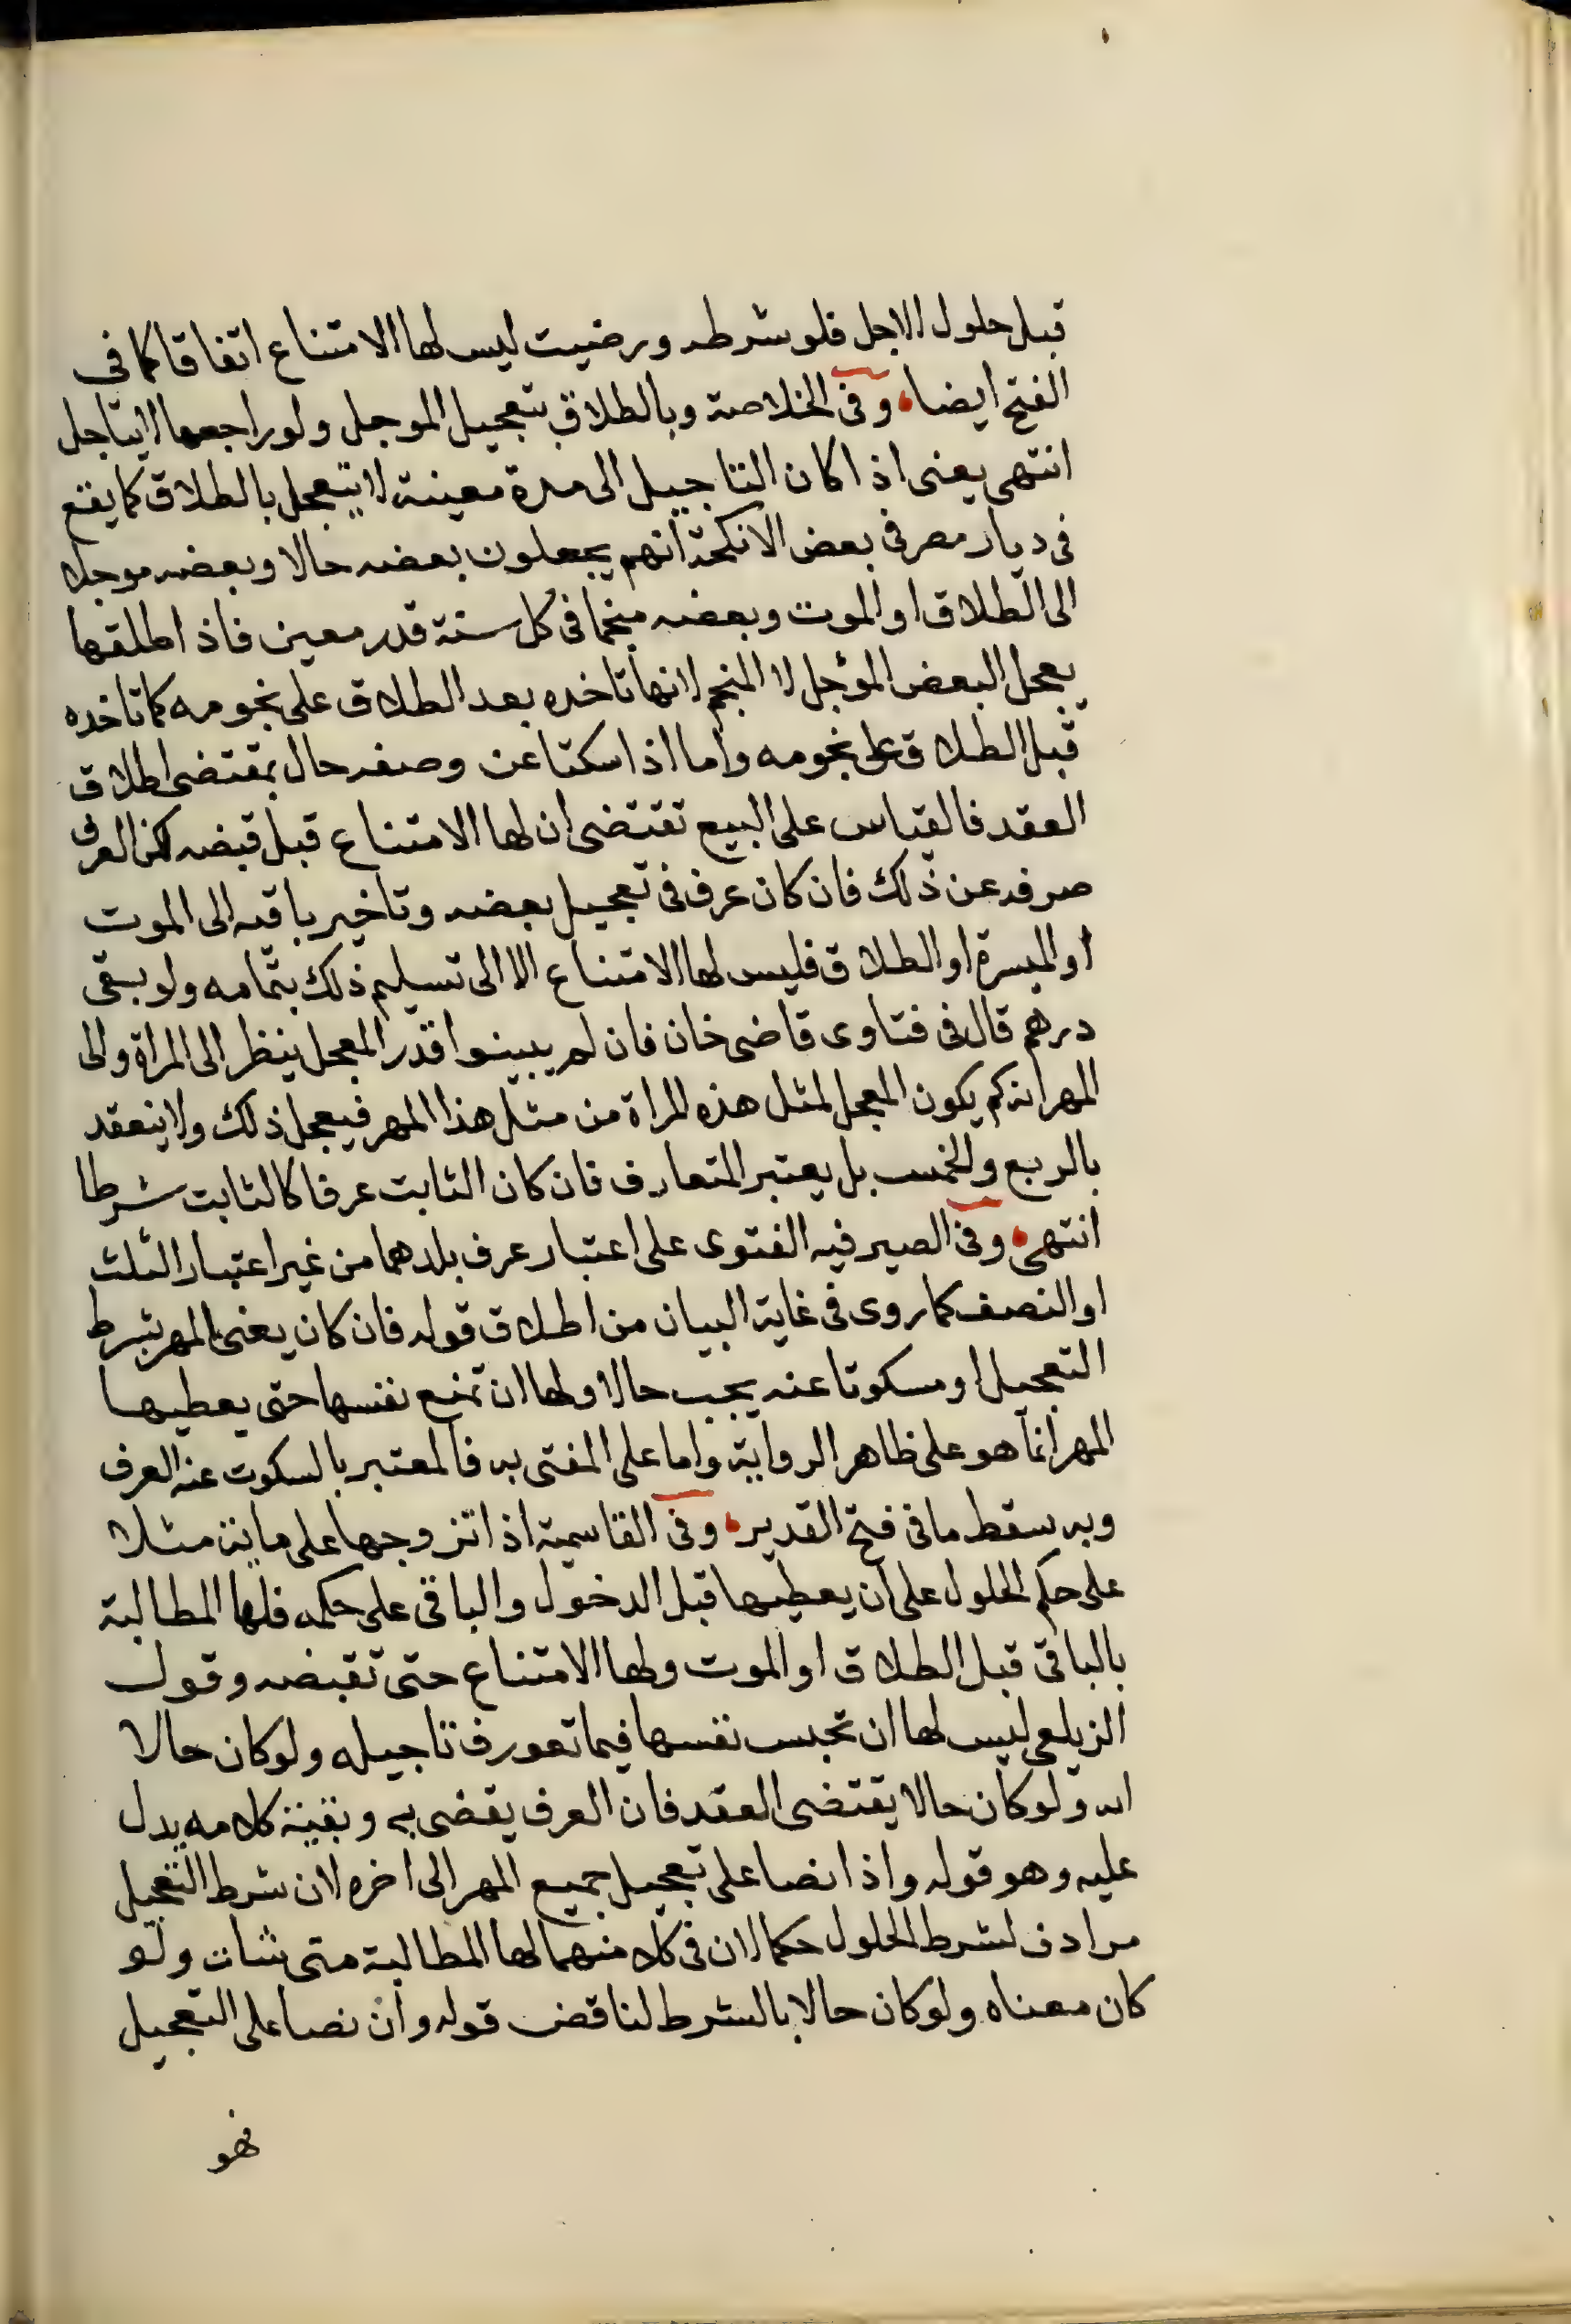 قبل حلول الاجل فلو شرطه ورضيت ليس لها الامتناع اتفاقا كما في
الفتح ايضا وفى الخلاصة وبالطلاق يتعجيل الموجل ولو راجعها لايتاجل
انتهى يعنى اذا كان التاجيل الى مدة معينة لا يتعجل بالطلاق كما يقع
فى ديار مصر فى بعض الانكحة انهم يجعلون بعضه حالا وبعضه موجلا
الى الطلاق او الموت وبعضه منجما فى كل سنة قدر معين فاذا طلقها
يعجل البعض المؤجل لا المنجم لانها تاخذه بعد الطلاق على نجومه كما تاخذه
قبل الطلاق على نجومه واما اذا سكتا عن وصفه حال بمقتضى اطلاق
العقد فالقياس على البيع تقتضى ان لها الامتناع قبل قبضه لكن العرف
صرفه عن ذلك فان كان عرف فى تعجيل بعضه وتاخير باقيه الى الموت
او الميسرة او الطلاق فليس لها الامتناع الا الى تسليم ذلك بتمامه ولو بقى
درهم قال فى فتاوى قاضى خان فان لم يبينوا قدر المعجل ينظر الى المراة والى
المهر انه كم يكون المعجل لمثل هذه المراة من مثل هذا المهر فيعجل ذلك ولا ينعقد
بالربع والخمس بل يعتبر المتعارف فان كان الثابت عرفا كالثابت شرطا
انتهى وفى الصيرفيه الفتوى على اعتبار عرف بلدهما من غير اعتبار الثلث
او النصف كما روى فى غاية البيان من اطلاق قوله فان كان يعنى المهر بشرط
التعجيل او مسكوتا عنه يجب حالا ولها ان تمنع نفسها حتى يعطيها
المهر انما هو على ظاهر الرواية واما على المفتى به فالمعتبر بالسكوت عنه العرف
وبه سقط ما فى فتح القدير وفى القاسمية اذا تزوجها على ماية مثلا
على حكم الحلول على ان يعطيها قبل الدخول والباقى على حكمه فلها المطالبة
بالباقى قبل الطلاق او الموت ولها الامتناع حتى تقبضه وقول
الزيلعى ليس لها ان تحبس نفسها فيما تعورف تاجيله ولو كان حالا
اى ولو كان حالا يقتضى العقد فان العرف يقضى به وبقية كلامه يدل
عليه وهو قوله واذا نصا على تعجيل جميع المهر الى اخره لان شرط التعجيل
مرادف لشرط الحلول حكما لان فى كلا منهما لها المطالبة متى شات ولو
كان معناه ولو كان حالا بالشرط لناقض قوله وان نصا على التعجيل
فهو